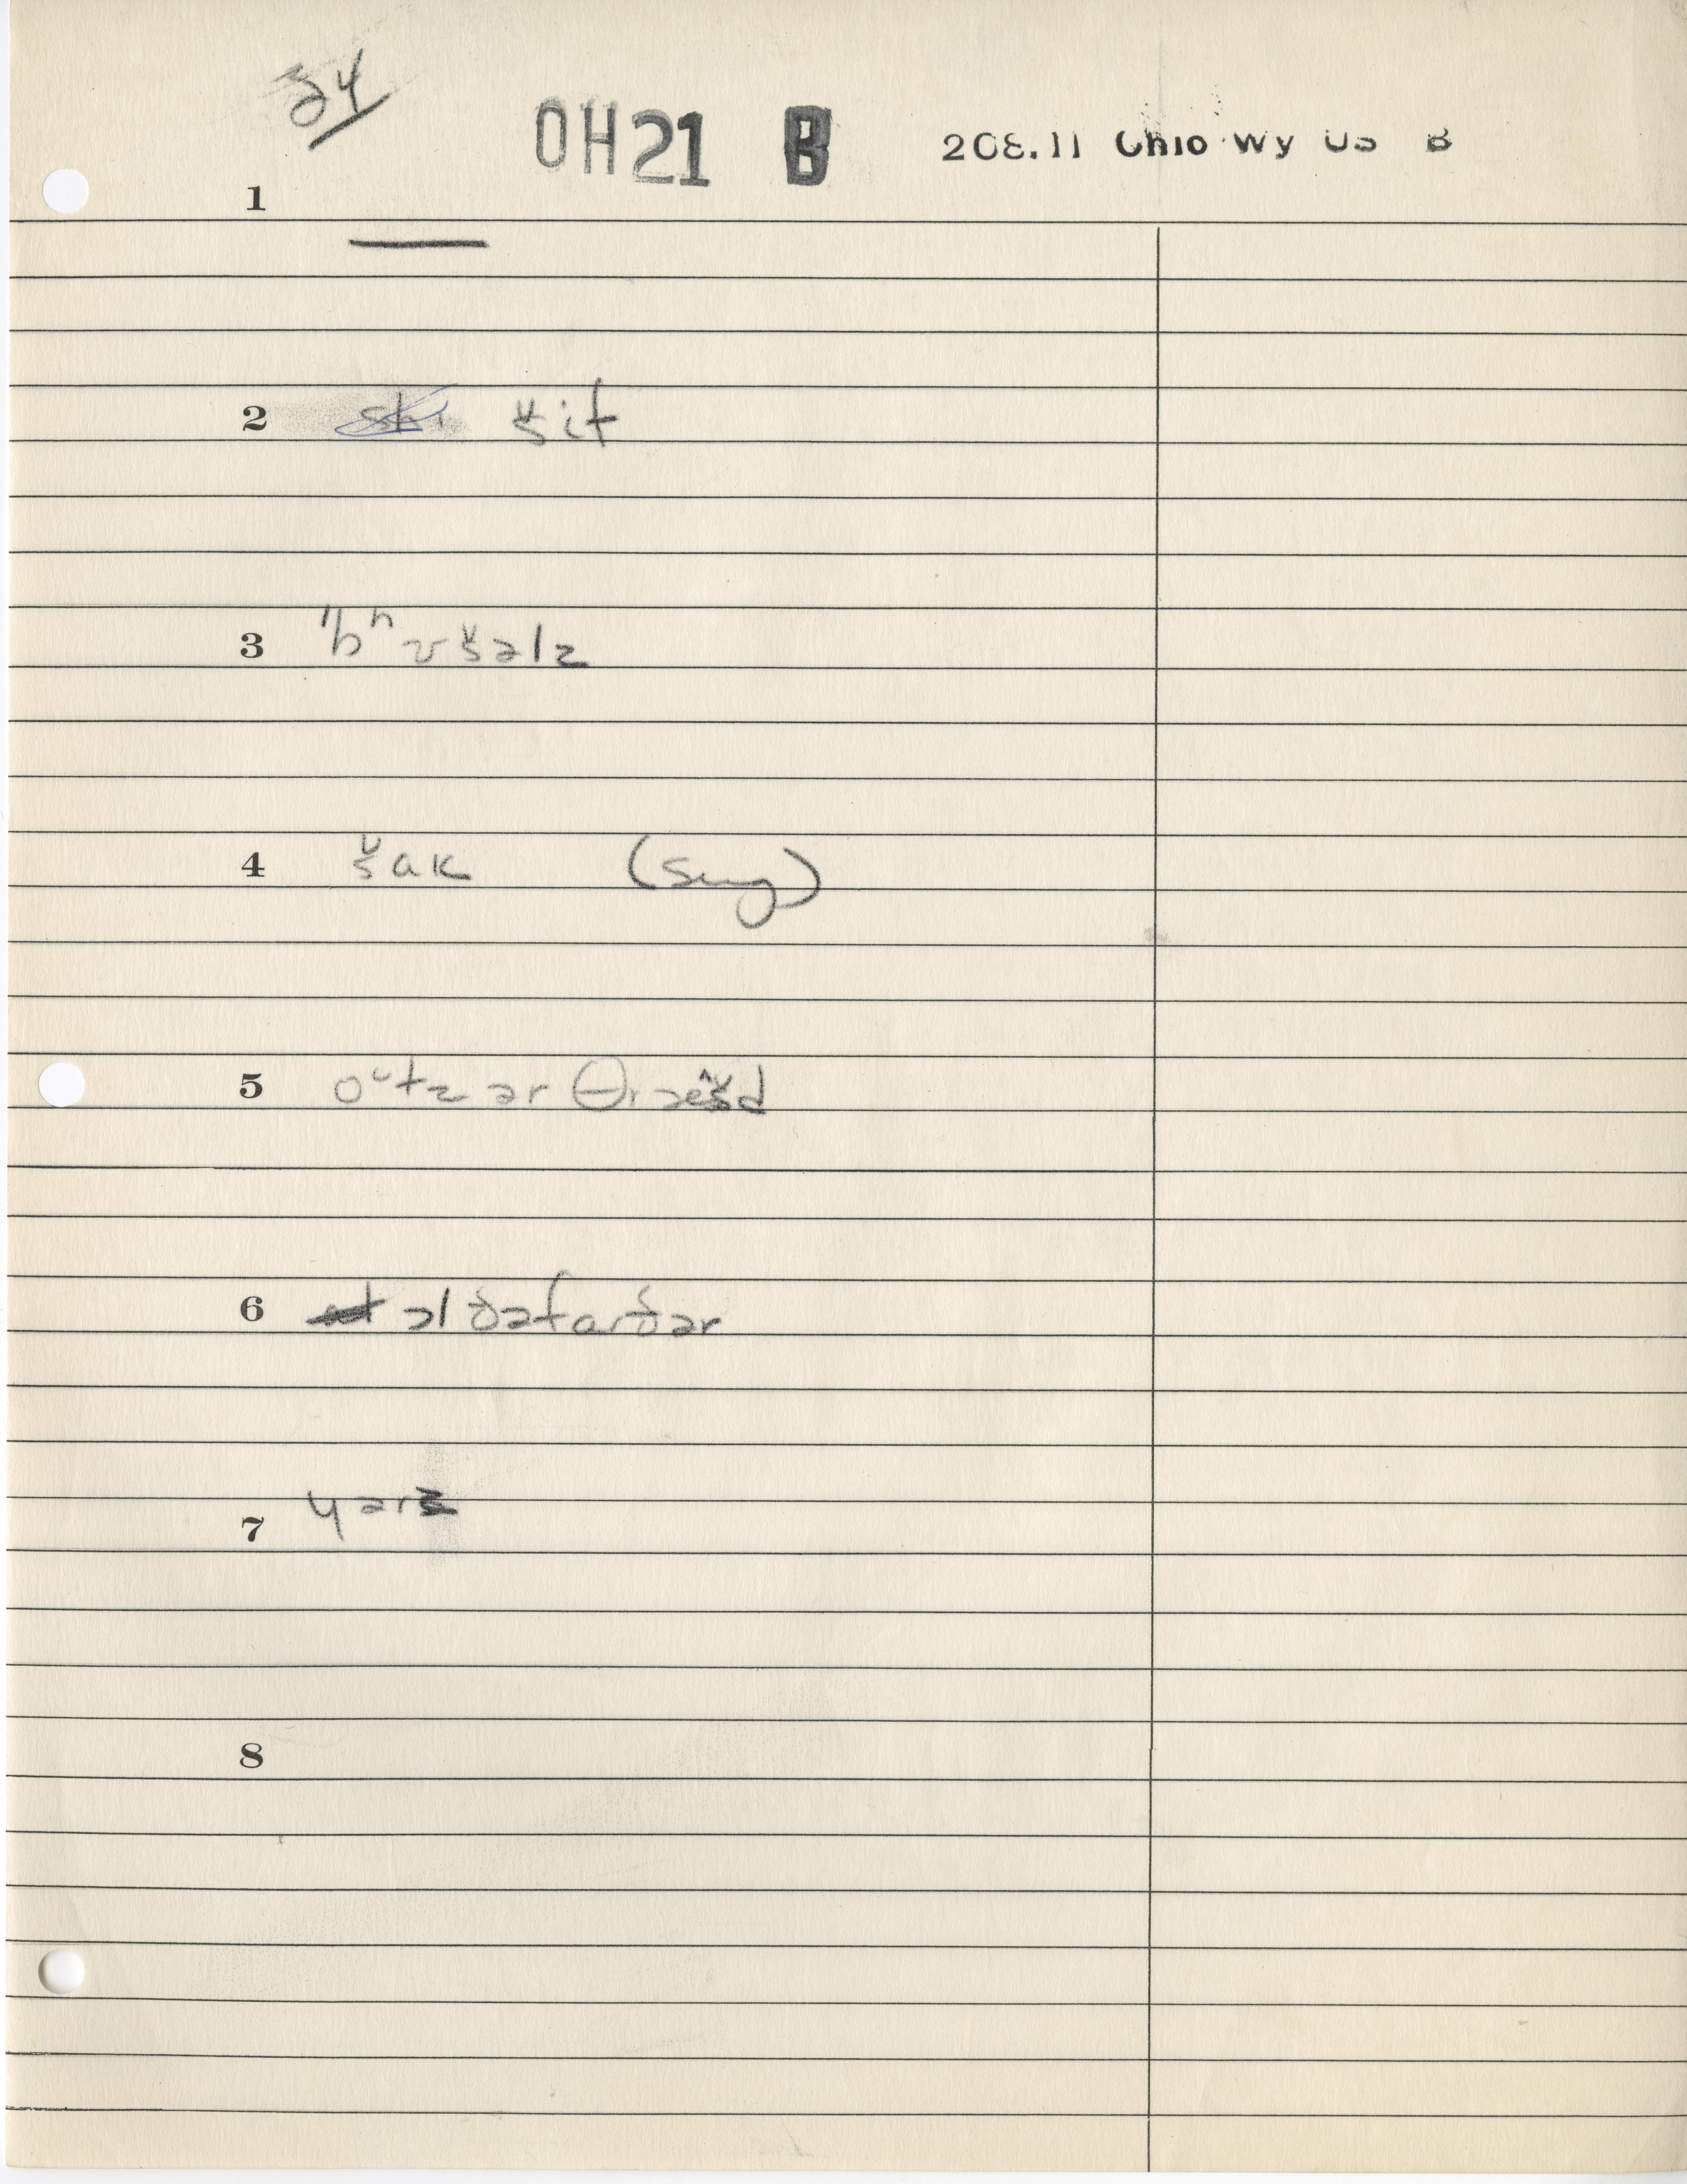 34
OH21 B 208.11 Ohio Wy Us B
1 —
2 šif
3 bʰʊšəlz
4 šak (sing)
5 oᵘtz ər θræ^šd
6 əl ðəfarðər
7 yərz
8